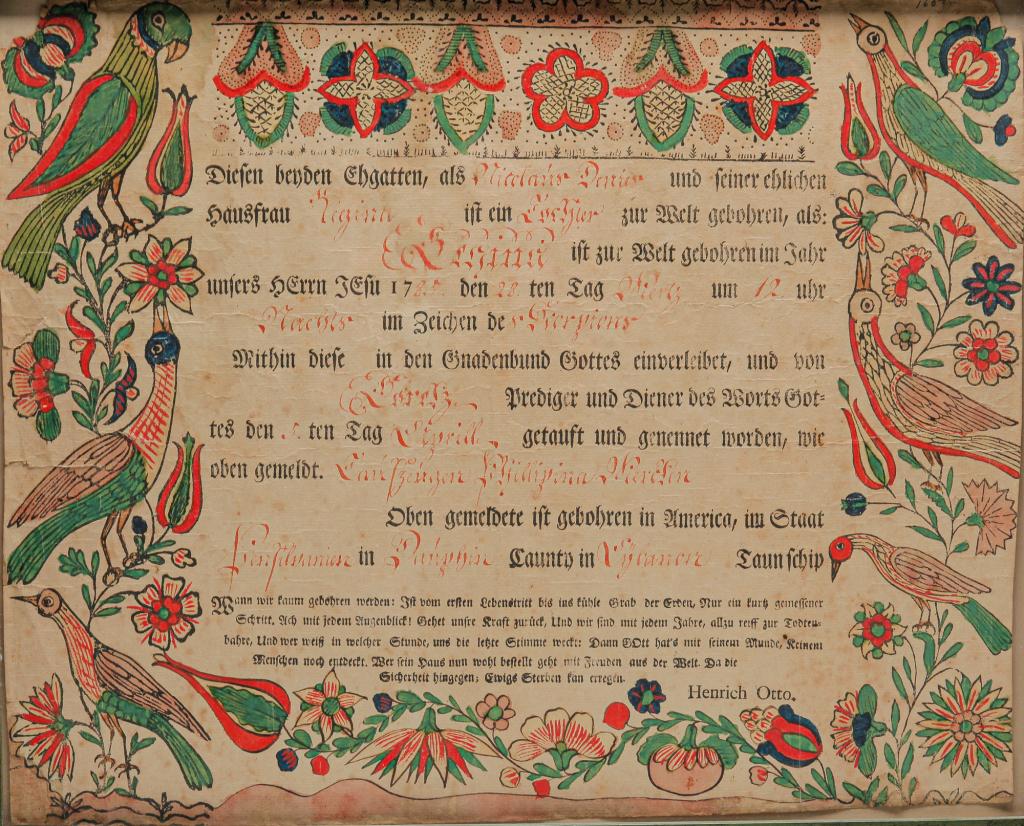 Diesen beyden Ehgatten, als Nicolaus und seiner ehlichen
Hausfrau Regina ist ein Tochter zur Welt gebohren, als:
Regina ist zur Welt gebohren im Jahr
unsers HErrn JEsu 17 den 28 ten Tag Mertz um 12 uhr
Nachts im Zeichen des Scorpions
Mithin diese in den Gnadenbund Gottes einverleibet, und von
Prediger und Diener des Worts Got-
tes den 5 ten Tag Aprill getauft und genennet worden, wie
oben gemeldt. Taufzeugen Phillipina
Oben gemeldete ist gebohren in America, im Staat
Pensilvanien in Dauphin Caunty in Taunschip
Wann wir kaum gebohren werden: Ist vom ersten Lebenstritt bis ins kühle Grab der Erden, Nur ein kurtz gemessner
Schritt, Ach mit jedem Augenblick! Gehet unsre Kraft zurück, Und wir sind mit jedem Jahre, allzu reiff zur Todten-
bahre, Und wer weiß in welcher Stunde, uns die letzte Stimme weckt: Dann GOtt hat's mit seinem Munde, Keinem
Menschen noch entdeckt. Wer sein Haus nun wohl bestellt geht mit Freuden aus der Welt. Da die
Sicherheit hingegen; Ewigs Sterben kan erregen.
Henrich Otto.